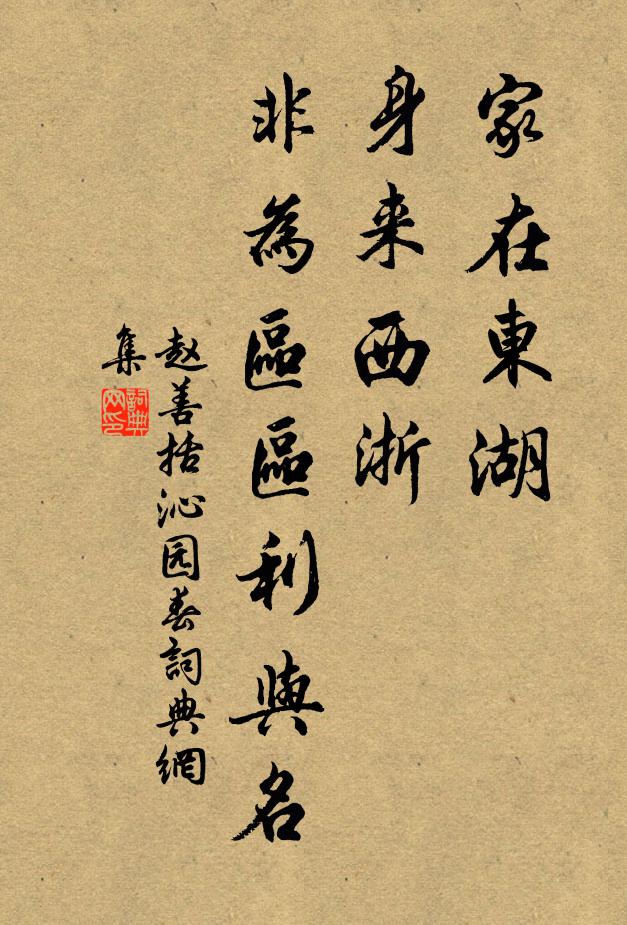 家在東湖
身来西浙
非為區區利與名
赵善括沁园春詞典網
集
詞典
网印